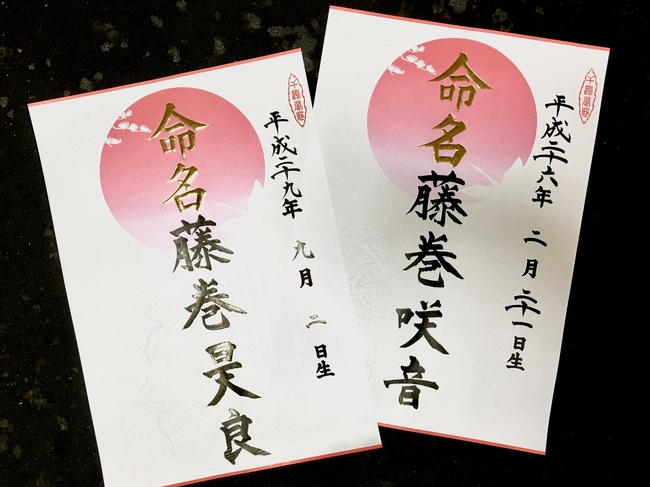 平成二十六年 二月 二十一日生
命名 藤巻 咲音
平成二十九年 九月 二日生
命名 藤巻 昊良